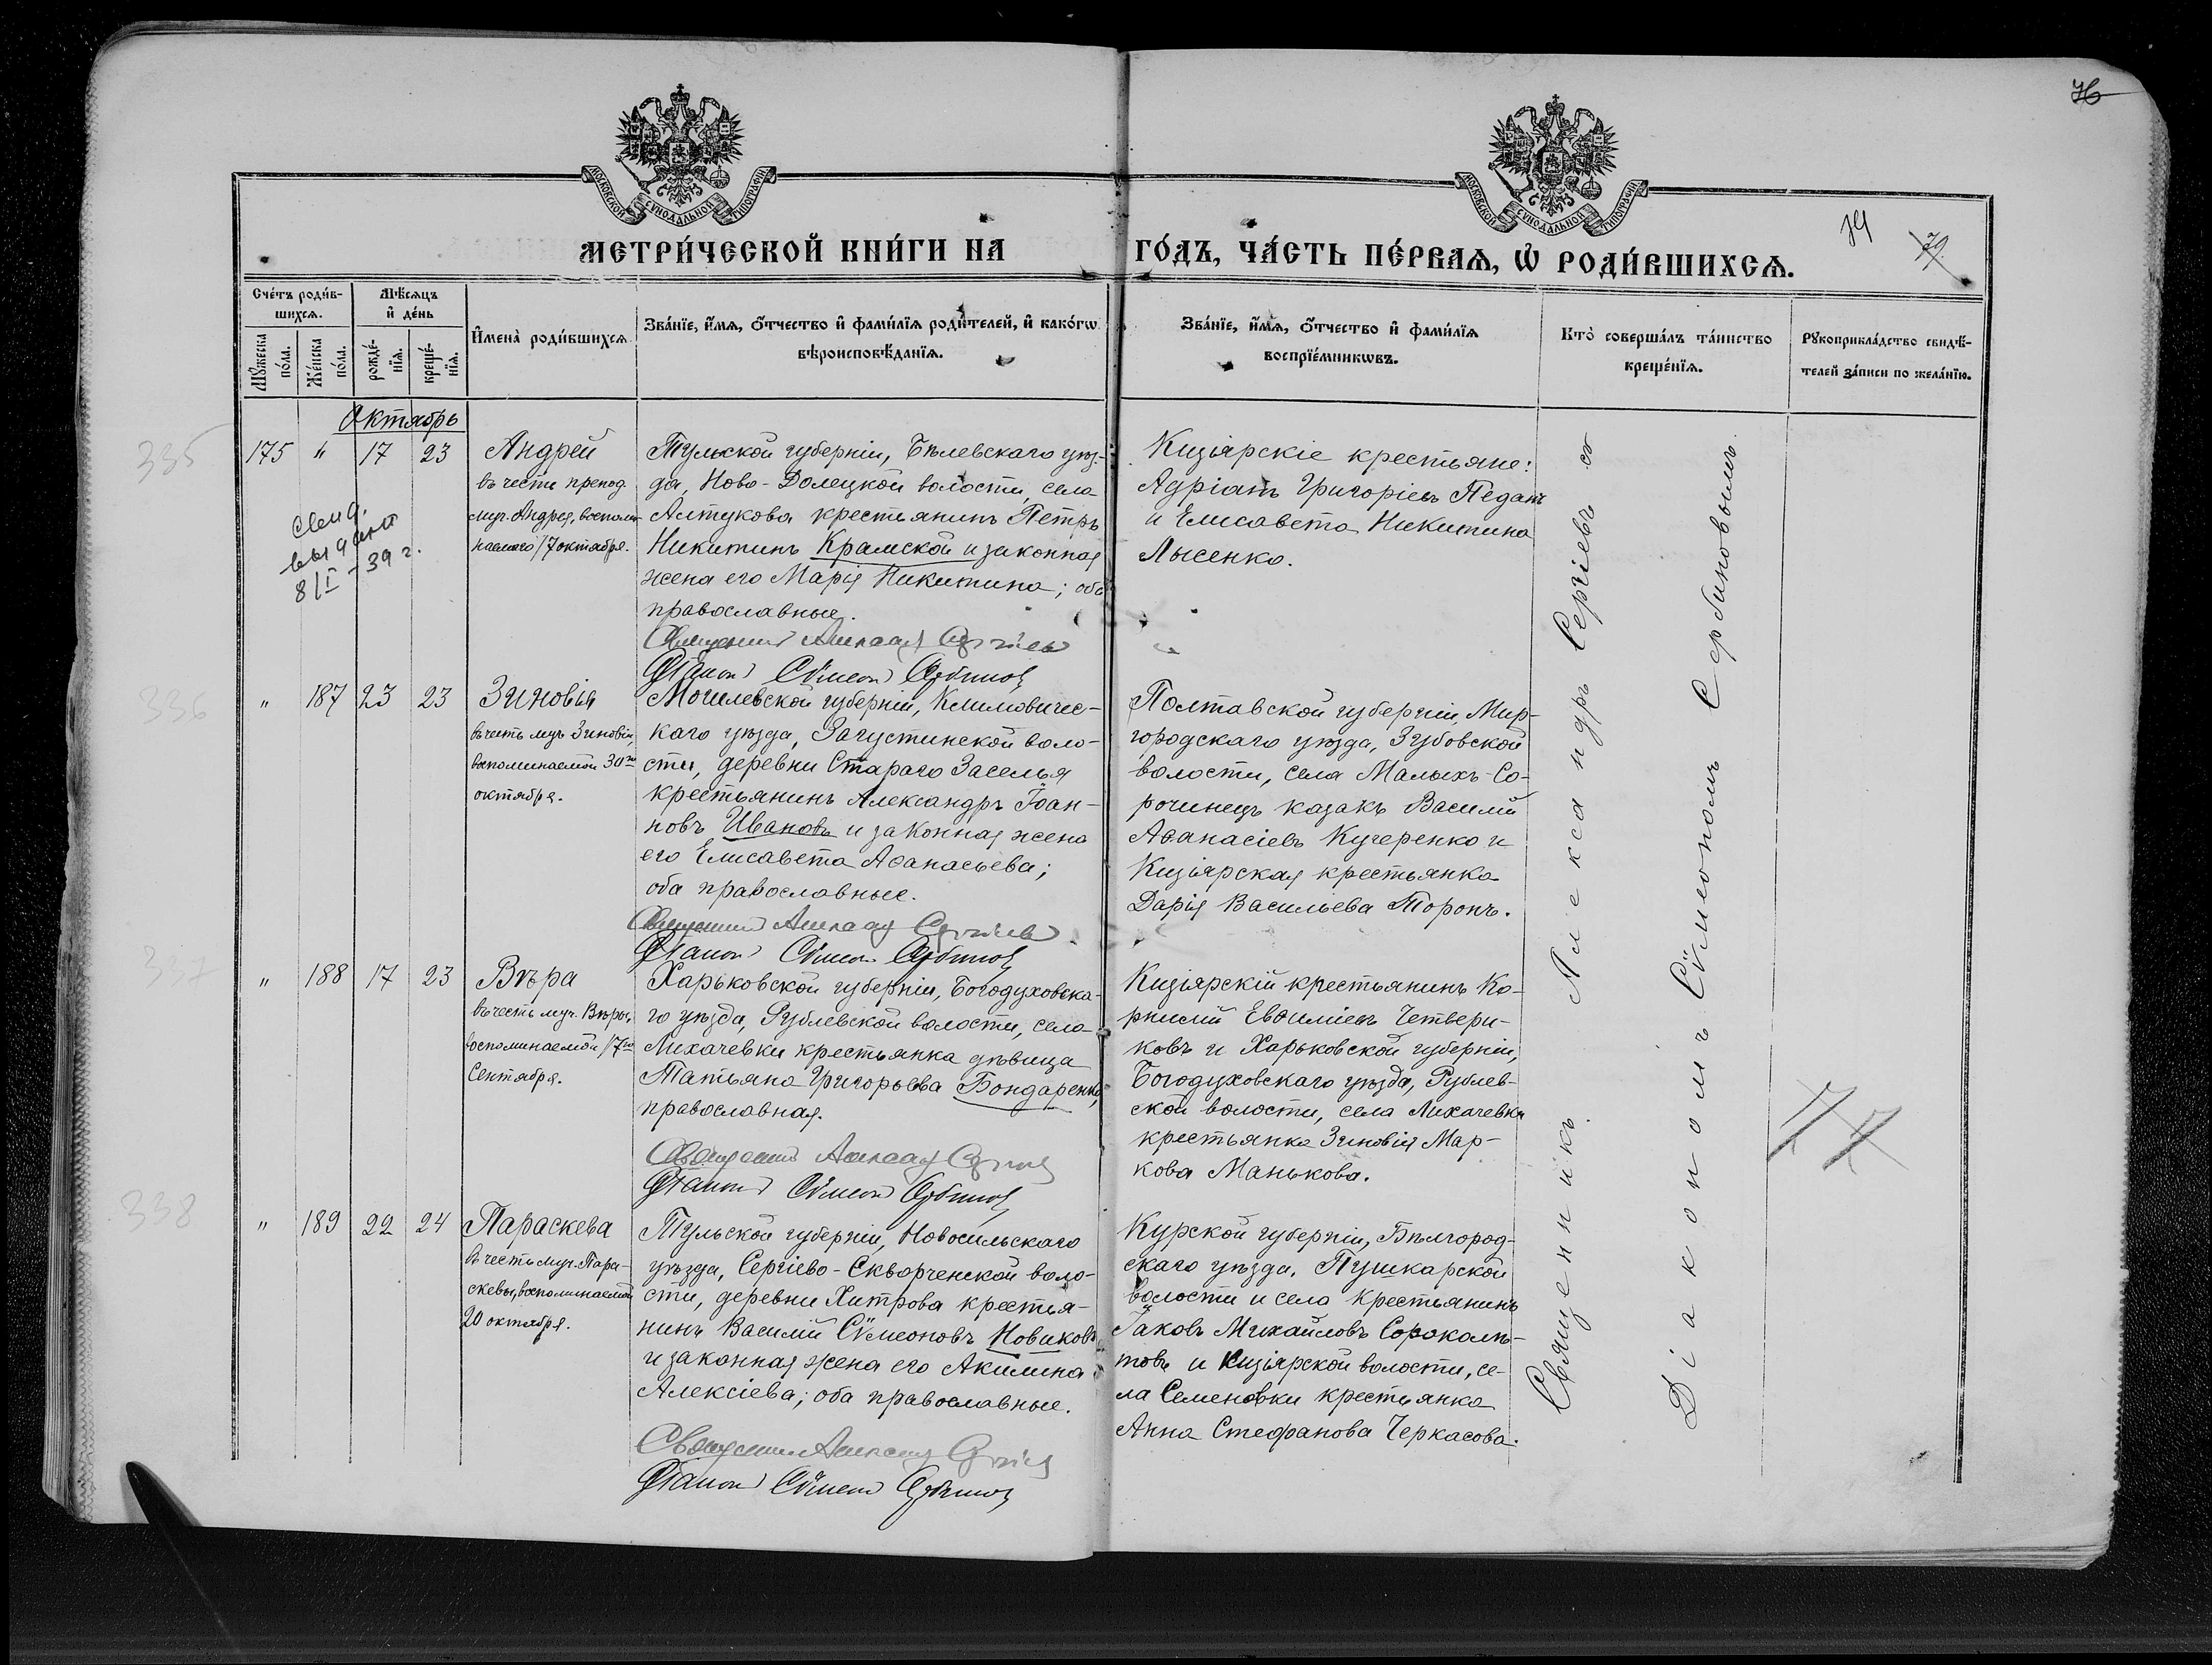 76
МОСКОВСКОЙ СУНОДАЛЬНОЙ ТИПОГРАФІИ
МОСКОВСКОЙ СУНОДАЛЬНОЙ ТИПОГРАФІИ
МЕТРИ́ЧЕСКОЙ КНИ́ГИ НА
ГО́ДЪ, ЧА́СТЬ ПЕ́РВАѦ, Ѡ҆ РОДИ́ВШИХСѦ.
79.
Сче́тъ роди́в-
шихсѧ.
Мꙋ́жеска по́ла.
Же́нска по́ла.
Мѣ́сѧцъ
и҆ де́нь
рожде́-нїѧ.
креще́-нїѧ.
И҆мена̀ роди́вшихсѧ
Зва́нїе, и҆́мѧ, ѻ҆́тчество и҆ фами́лїѧ роди́телей, и҆ како́гѡ
вѣроисповѣ́данїѧ.
Зва́нїе, и҆́мѧ, ѻ҆́тчество и҆ фами́лїѧ
воспрїе́мникѡвъ.
Кто̀ соверша́лъ та́инство
креще́нїѧ.
Рꙋкоприкла́дство свидѣ́-
телей за́писи по жела́нїю.
Октябрь
335
175 " 17 23
Андрей
въ честь препод.
муч. Андрея, воспоми-
наемаго 17 октября.
Свид.
выдано
8/I-39 г.
Тульской губерніи, Бѣлевскаго уѣз-
да, Ново-Долецкой волости, села
Алтухова крестьянинъ Петръ
Никитинъ Крамской и законная
жена его Марія Никитина; оба
православные.
Священникъ Александръ Сергіевъ
Діаконъ Сѵмеонъ Сербиновъ
Кизіярскіе крестьяне:
Адріанъ Григоріевъ Педанъ
и Елисавета Никитина
Лысенко.
336
" 187 23 23
Зиновія
въ честь муч. Зиновіи,
воспоминаемой 30го
октября.
Могилевской губерніи, Климовичес-
каго уѣзда, Загустинской воло-
сти, деревни Стараго Заселья
крестьянинъ Александръ Іоан-
новъ Ивановъ и законная жена
его Елисавета Аѳанасьева;
оба православные.
Священникъ Александръ Сергіевъ
Діаконъ Сѵмеонъ Сербиновъ
Полтавской губерніи, Мир-
городскаго уѣзда, Зубовской
волости, села Малыхъ-Со-
рочинецъ казакъ Василій
Аѳанасіевъ Кучеренко и
Кизіярская крестьянка
Дарія Васильева Торонъ.
337
" 188 17 23
Вѣра
въ честь муч. Вѣры,
воспоминаемой 17го
Сентября.
Харьковской губерніи, Богодуховска-
го уѣзда, Рублевской волости, села
Лихачевки крестьянка дѣвица
Татьяна Григорьева Бондаренко,
православная.
Священникъ Александръ Сергіевъ
Діаконъ Сѵмеонъ Сербиновъ
Кизіярскій крестьянинъ Ко-
рнилій Евѳиміевъ Четвери-
ковъ и Харьковской губерніи,
Богодуховскаго уѣзда, Рублев-
ской волости, села Лихачевки
крестьянка Зиновія Мар-
кова Манькова.
338
" 189 22 24
Параскева
въ честь муч. Пара-
скевы, воспоминаемой
20 октября.
Тульской губерніи, Новосильскаго
уѣзда, Сергіево-Скворченской воло-
сти, деревни Хитрова крестья-
нинъ Василій Сѵмеоновъ Новиковъ
и законная жена его Акилина
Алексіева; оба православные.
Священникъ Александръ Сергіевъ
Діаконъ Сѵмеонъ Сербиновъ
Курской губерніи, Бѣлгород-
скаго уѣзда, Пушкарской
волости и села крестьянинъ
Іаковъ Михайловъ Сороколѣ-
товъ и Кизіярской волости, се-
ла Семеновки крестьянка
Анна Стефанова Черкасова.
Священникъ Александръ Сергіевъ съ
Діакономъ Сѵмеономъ Сербиновымъ.